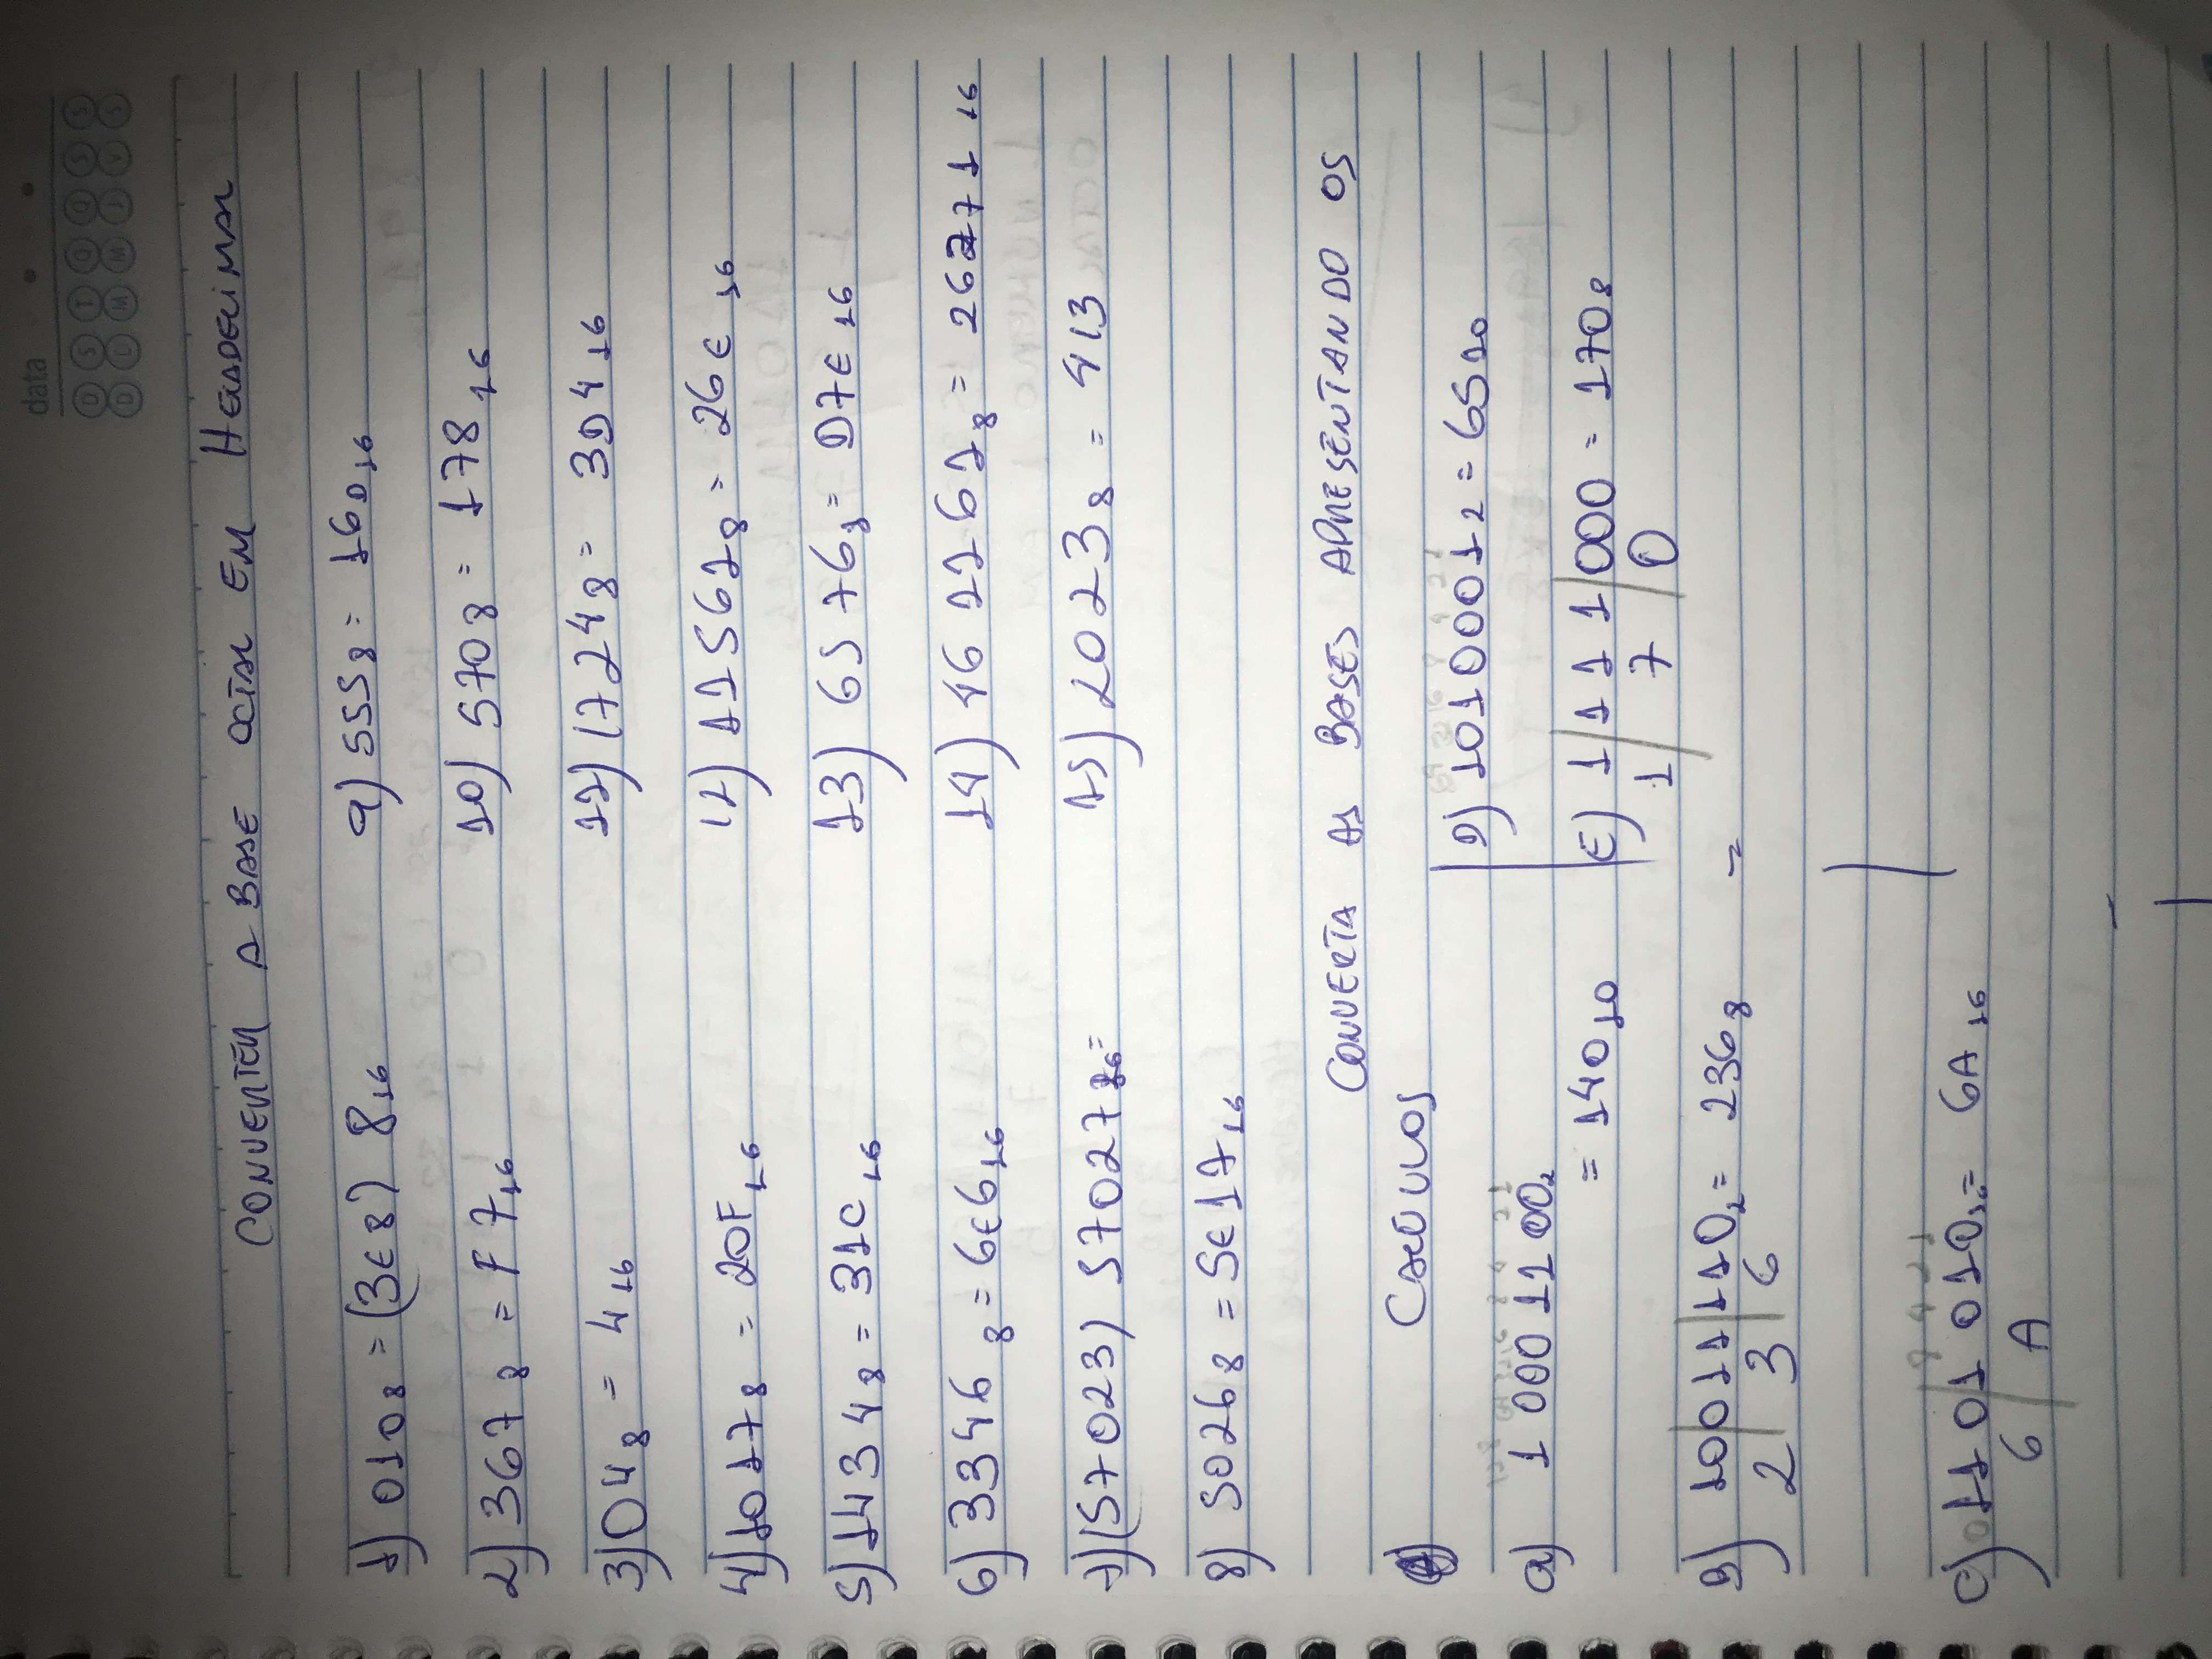 data
D S T Q Q S S
D L M M J V S
CONVERTER A BASE OCTAL EM HEXADECIMAL
1) 010 8 = (3E8) 8 16
2) 367 8 = F7 16
3) 04 8 = 4 16
4) 1017 8 = 20F 16
5) 1434 8 = 31C 16
6) 3346 8 = 6E6 16
7) (57023) 57027 16 =
8) 5026 8 = 5E17 16
9) 555 8 = 16D 16
10) 570 8 = 178 16
11) 1724 8 = 3D4 16
12) 11561 8 = 26E 16
13) 6576 8 = D7E 16
14) 461161 8 = 26271 16
15) 2023 8 = 413
CONVERTA AS BASES APRESENTANDO OS
CALCULOS
128 64 32 16 8 4 2 1
a) 1 0001100 2
= 140 10
B) 10/011/110 2 = 236 8
2 3 6
8 4 2 1
C) 0110/1010 = 6A 16
6 A
64 32 16 8 4 2 1
D) 1010001 2 = 65 10
E) 1/111/000 = 170 8
1 7 0
=